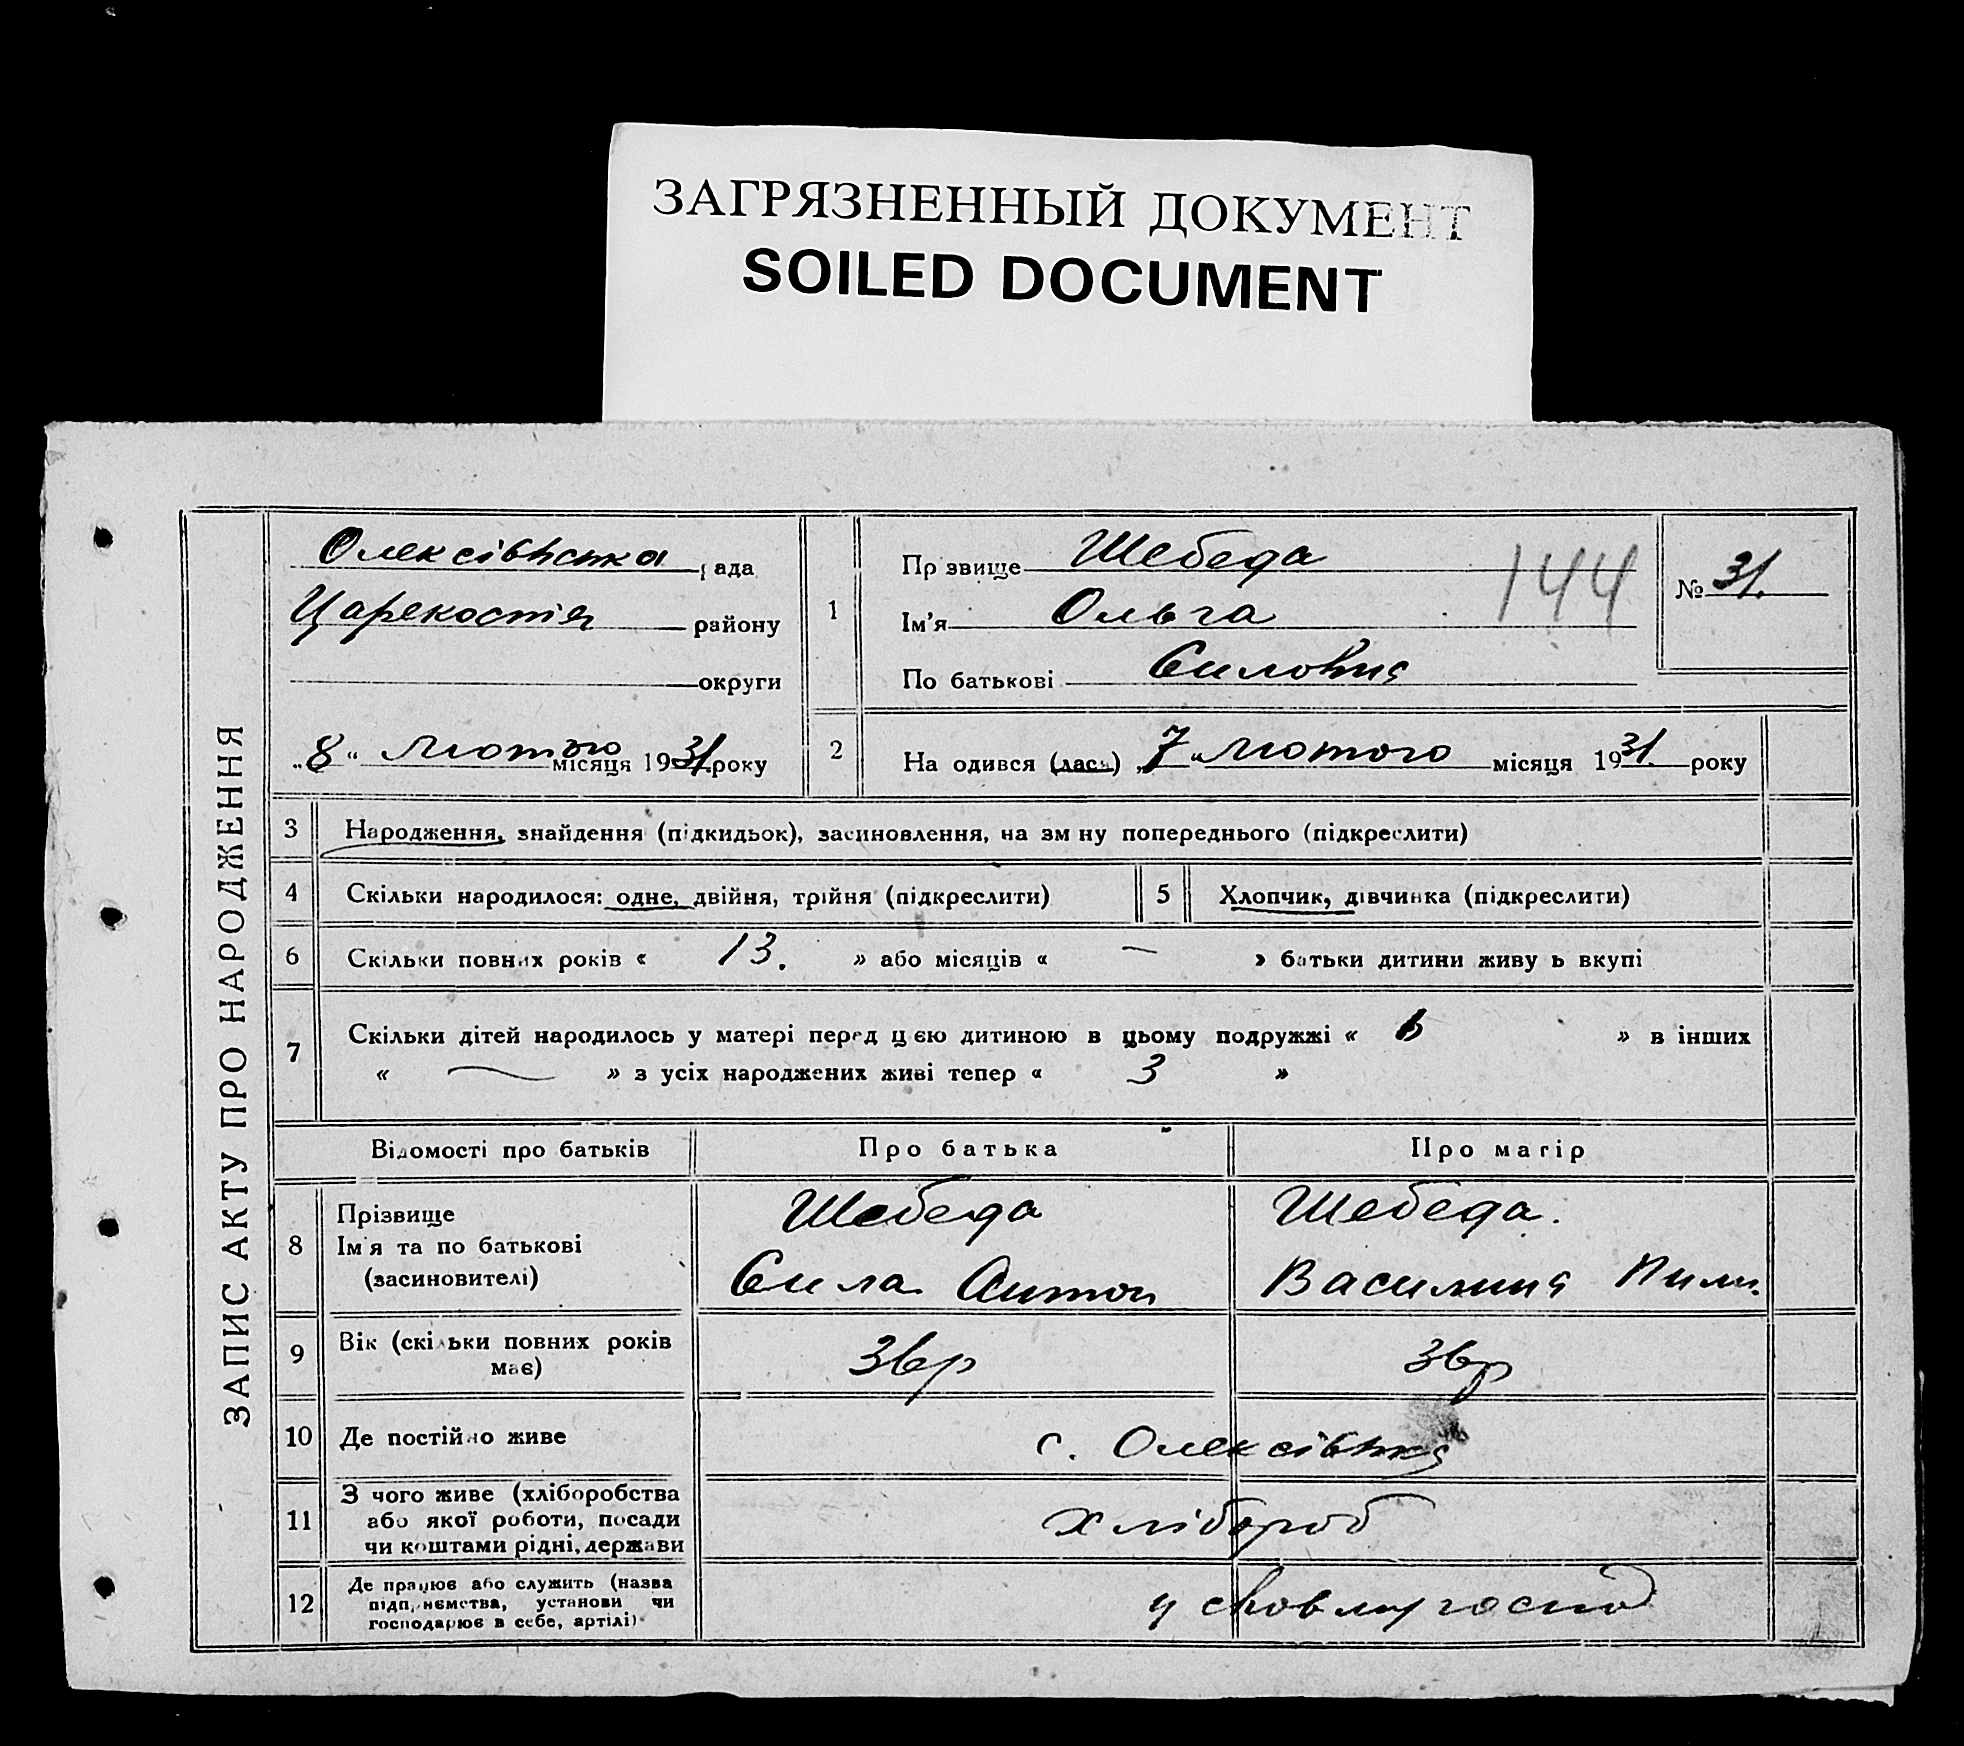 ЗАГРЯЗНЕННЫЙ ДОКУМЕНТ
SOILED DOCUMENT
ЗАПИС АКТУ ПРО НАРОДЖЕННЯ
Олексівська рада
Царекостя району
округи
„8“ Лютого місяця 1931. року
1
Прізвище Шебеда
Ім'я Ольга
По батькові Силовна
144
№ 31.
2
На одився (лась) „7“ Лютого місяця 1931. року
3 Народження, знайдення (підкидьок), засиновлення, на зміну попереднього (підкреслити)
4 Скільки народилося: одне, двійня, трійня (підкреслити) 5 Хлопчик, дівчинка (підкреслити)
6 Скільки повних років « 13. » або місяців « — » батьки дитини живу ь вкупі
7 Скільки дітей народилось у матері перед цією дитиною в цьому подружжі « » в інших
« — » з усіх народжених живі тепер « 3 »
Відомості про батьків Про батька Про матір
8 Прізвище
Ім'я та по батькові
(засиновителі)
Шебеда
Сила Антон
Шебеда.
Василина Пили.
9 Вік (скільки повних років
має)
36р 36р
10 Де постійно живе с. Олексівка
11 З чого живе (хліборобства
або якої роботи, посади
чи коштами рідні, держави
хлібороб
12 Де працює або служить (назва
підприємства, установи чи
господарює в себе, артілі)
у своему господ